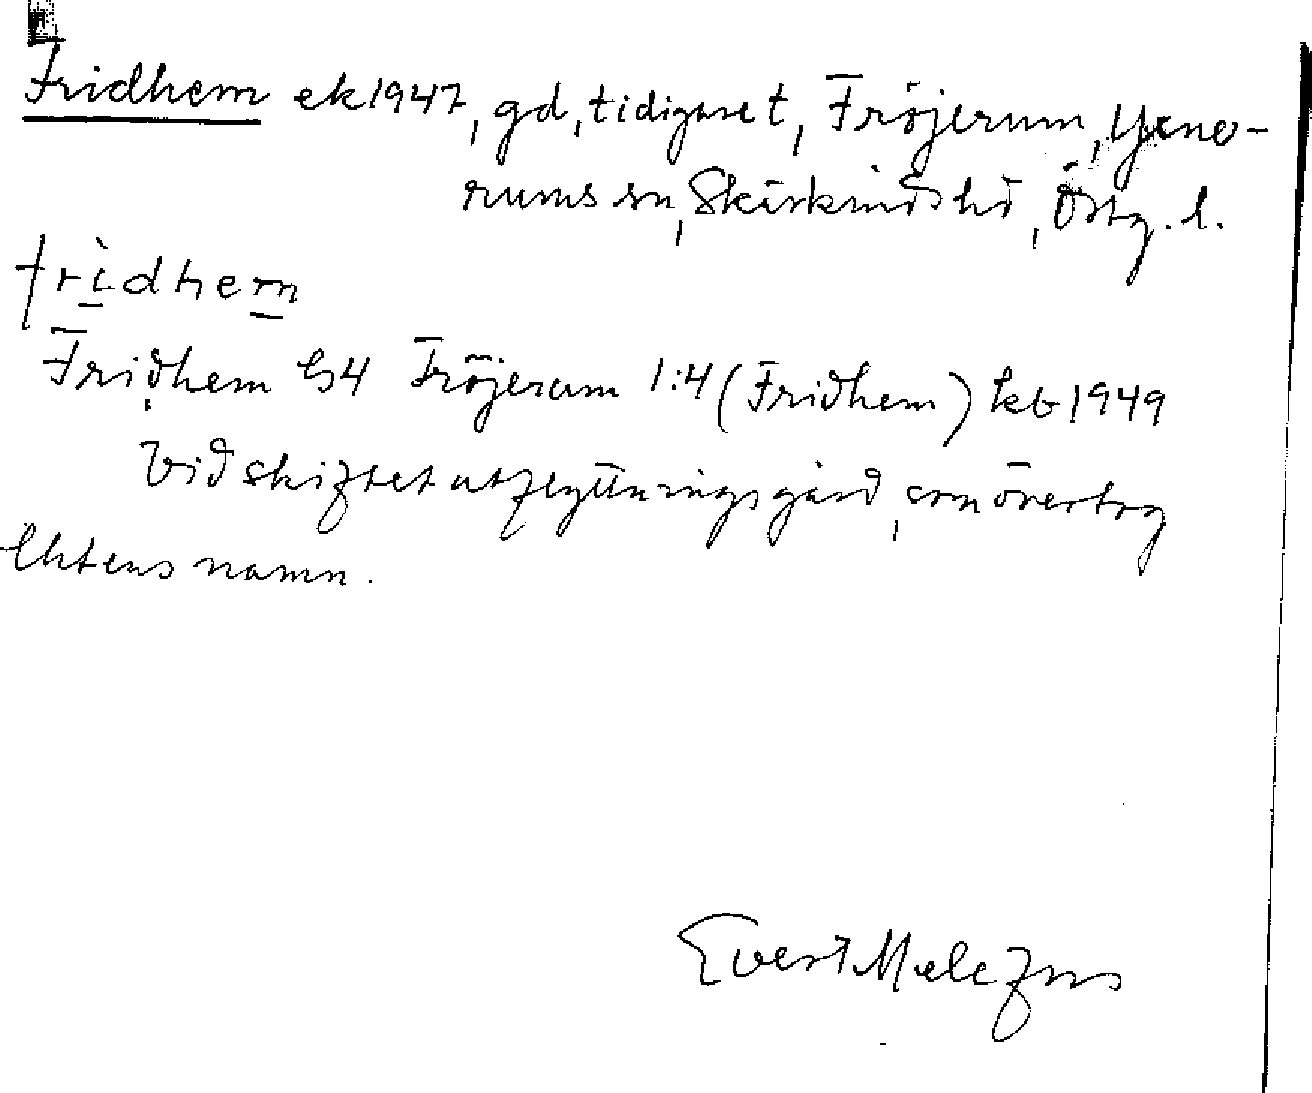 Fridhem ek 1947, gd, tidigare t, Fröjerum, Yxne-
rums sn, Skärkinds hd, Östg. l.
fridhem
Fridhem G4 Fröjerum 1:4 (Fridhem) kb 1949
Vid skiftet utflyttningsgård, som övertog
namn.
Evert Melefors